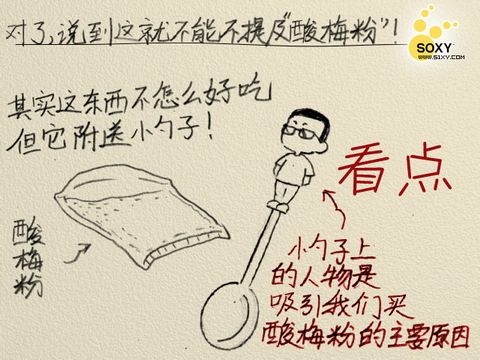 对了,说到这就不能不提及"酸梅粉"!
SOXY
WWW.51XY.COM
其实这东西不怎么好吃
但它附送小勺子!
看点
酸梅粉
小勺子上
的人物是
吸引我们买
酸梅粉的主要原因